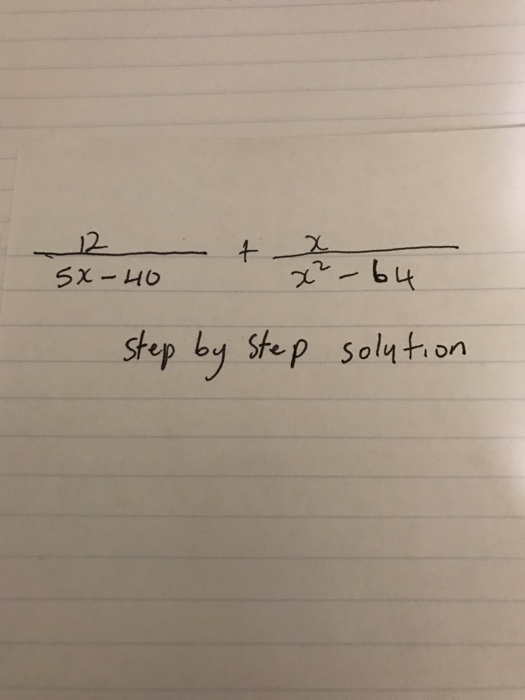 12 / 5x - 40 + x / x² - 64
Step by Step solution